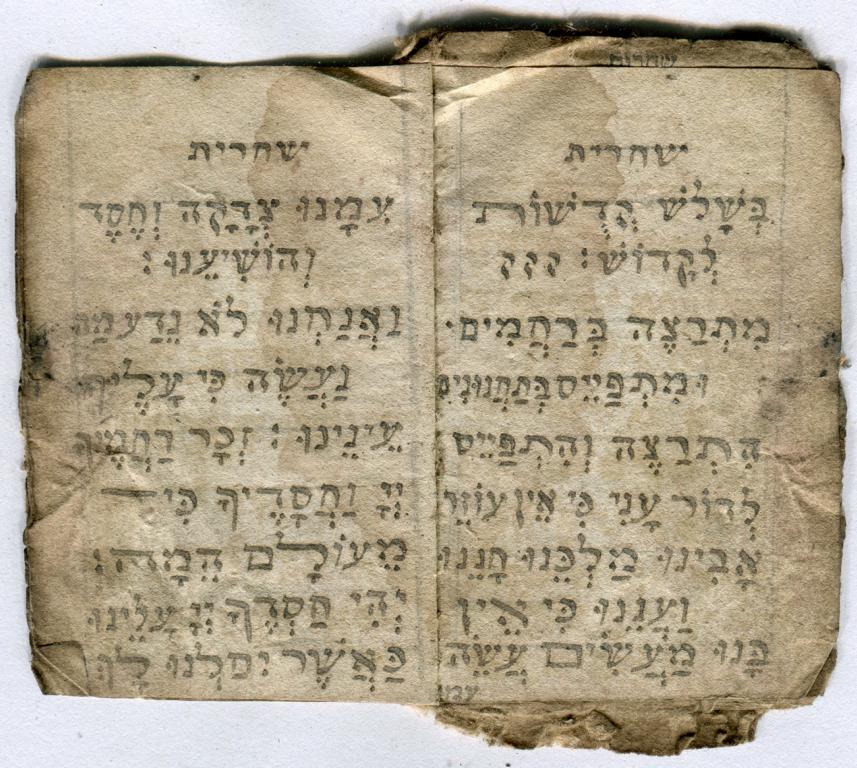 שחרית
בְּשָׁלֹשׁ קְדֻשׁוֹת
לְקָדוֹשׁ:
מִתְרַצֶּה בְּרַחֲמִים.
וּמִתְפַּיֵּס בְּתַחֲנוּנִים
הִתְרַצֶּה וְהִתְפַּיֵּס
לְדוֹר עָנִי כִּי אֵין עוֹזֵר
אָבִינוּ מַלְכֵּנוּ חָנֵּנוּ
וַעֲנֵנוּ כִּי אֵין
בָּנוּ מַעֲשִׂים עֲשֵׂה
שחרית
עִמָּנוּ צְדָקָה וָחֶסֶד
וְהוֹשִׁיעֵנוּ:
וַאֲנַחְנוּ לֹא נֵדַע מַה
נַּעֲשֶׂה כִּי עָלֶיךָ
עֵינֵינוּ: זְכָר רַחֲמֶיךָ
יְיָ וַחֲסָדֶיךָ כִּי
מֵעוֹלָם הֵמָּה:
יְהִי חַסְדְּךָ יְיָ עָלֵינוּ
כַּאֲשֶׁר יִחַלְנוּ לָךְ: